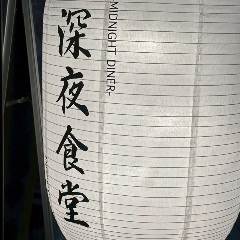 深夜食堂
MIDNIGHT DINER-